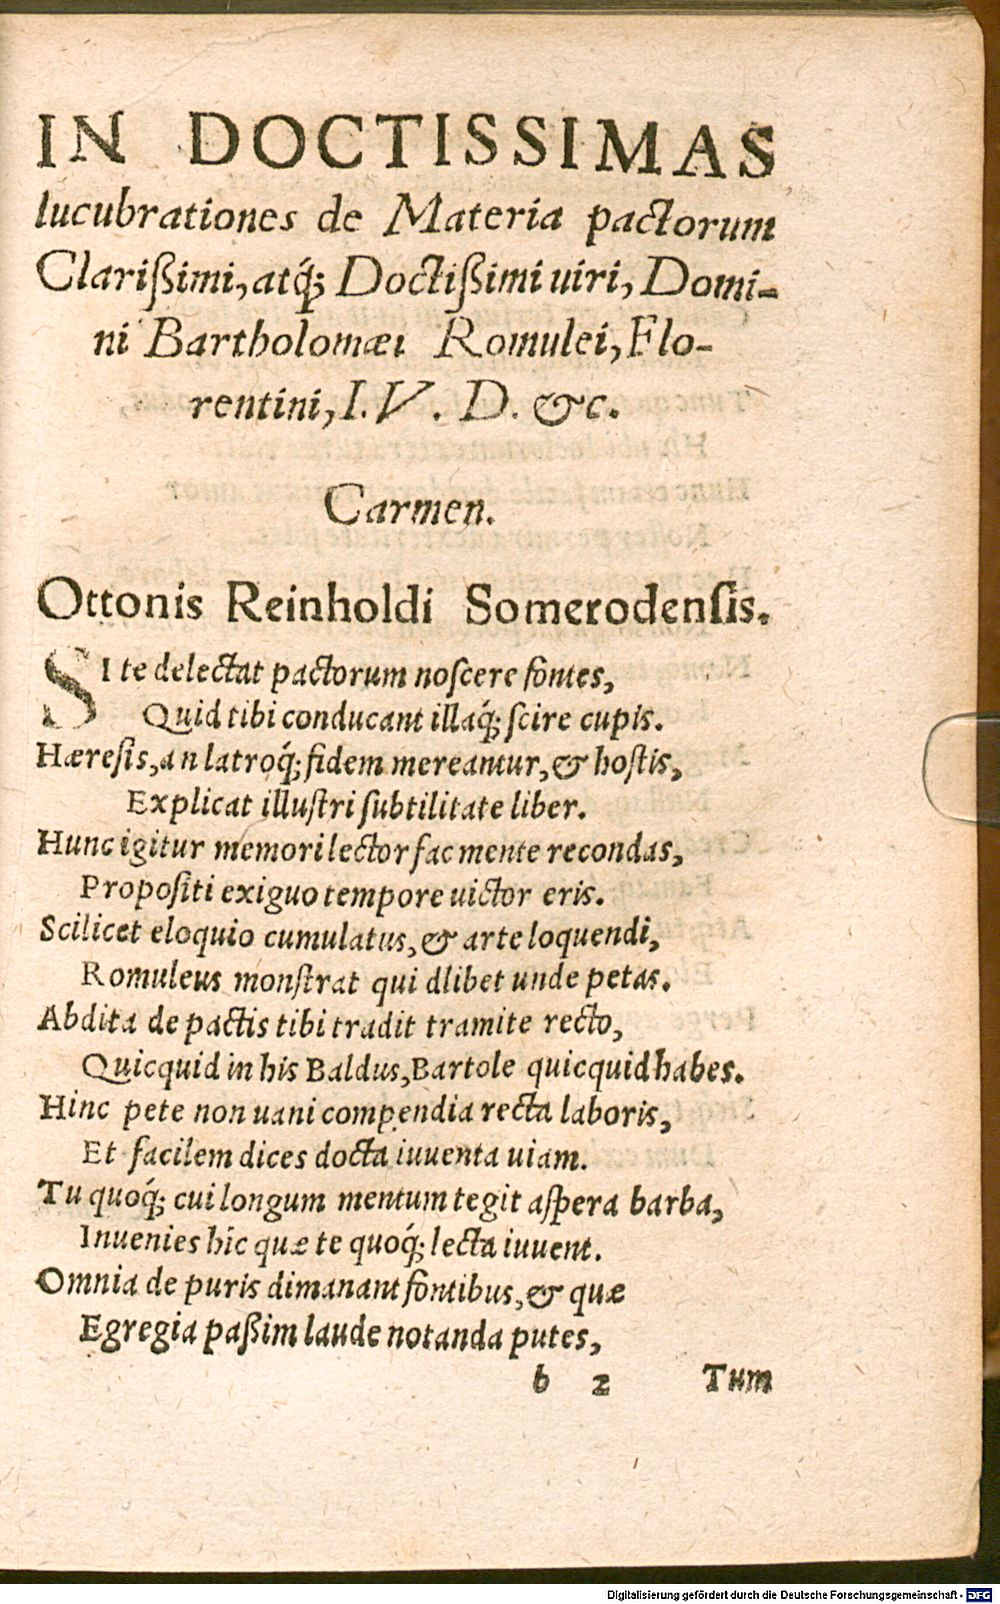 IN DOCTISSIMAS
lucubrationes de Materia pactorum
Clarißimi, atq́; Doctißimi uiri, Domi-
ni Bartholomæi Romulei, Flo-
rentini, I. V. D. &c.
Carmen.
Ottonis Reinholdi Somerodenſis.
SI te delectat pactorum noſcere fontes,
Quid tibi conducant illaq́; ſcire cupis.
Hæreſis, an latroq́; fidem mereantur, & hoſtis,
Explicat illuſtri ſubtilitate liber.
Hunc igitur memori lector fac mente recondas,
Propoſiti exiguo tempore uictor eris.
Scilicet eloquio cumulatus, & arte loquendi,
Romuleus monſtrat qui dlibet unde petas.
Abdita de pactis tibi tradit tramite recto,
Quicquid in his Baldus, Bartole quicquid habes.
Hinc pete non uani compendia recta laboris,
Et facilem dices docta iuuenta uiam.
Tu quoq́; cui longum mentum tegit aſpera barba,
Inuenies hic quæ te quoq́; lecta iuuent.
Omnia de puris dimanant fontibus, & quæ
Egregia paßim laude notanda putes,
b 2 Tum
Digitalisierung gefördert durch die Deutsche Forschungsgemeinschaft - DFG